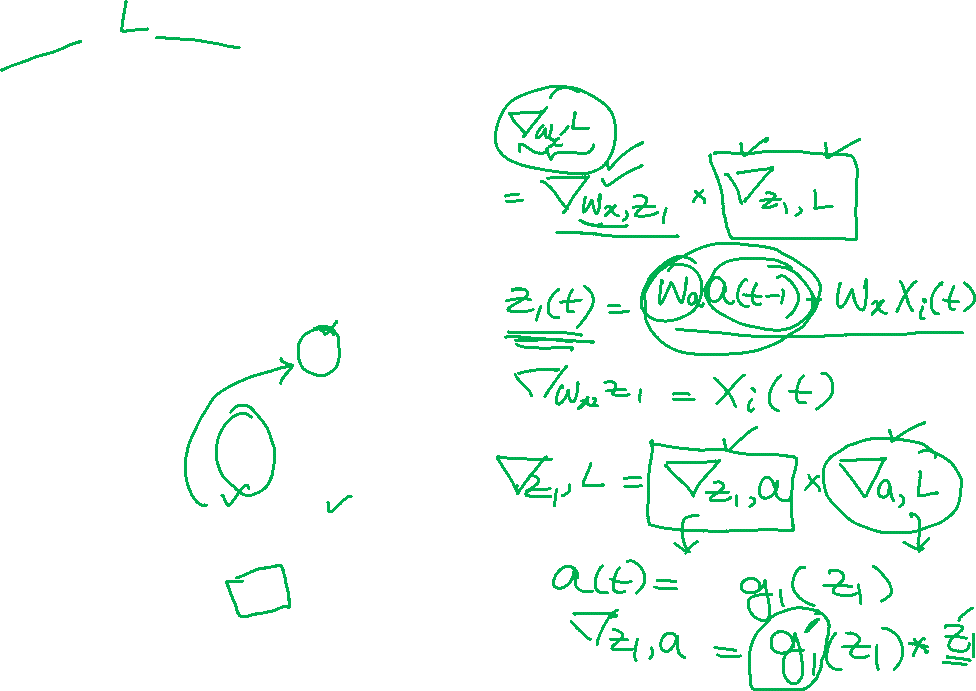 L
∇a,L
= ∇Wx,z₁ × ∇z₁,L
z₁(t) = Wa a(t-1) + Wx Xᵢ(t)
∇Wx z₁ = Xᵢ(t)
∇z₁,L = ∇z₁,a × ∇a,L
a(t) = g₁(z₁)
∇z₁,a = g₁'(z₁) * z₁'